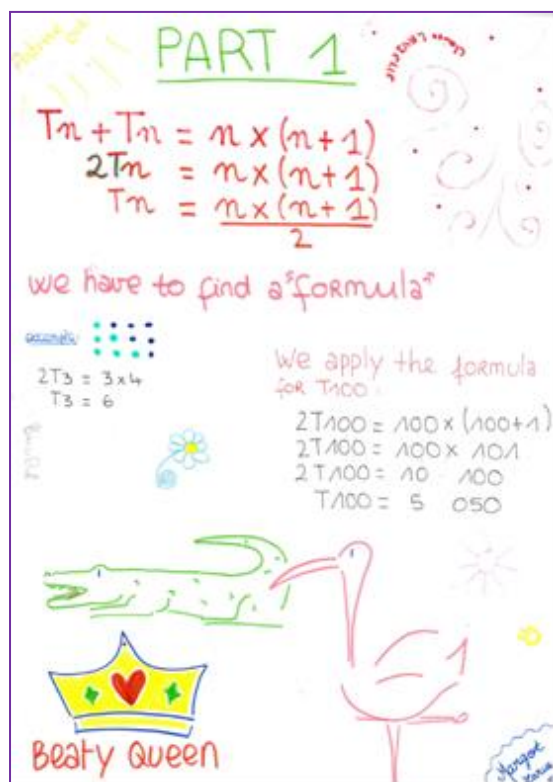 PART 1
Tn + Tn = n x (n + 1)
2Tn = n x (n + 1)
Tn = n x (n + 1)
2
We have to find a "formula"
example:
2T3 = 3 x 4
T3 = 6
We apply the formula
for T100 :
2T100 = 100 x (100 + 1)
2T100 = 100 x 101
2T100 = 10 100
T100 = 5 050
Beaty Queen
Margot